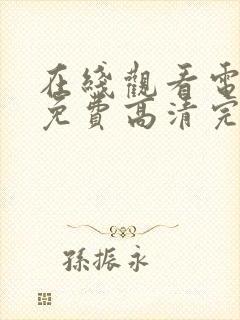 在綫觀看電
免費高清完
孫振永